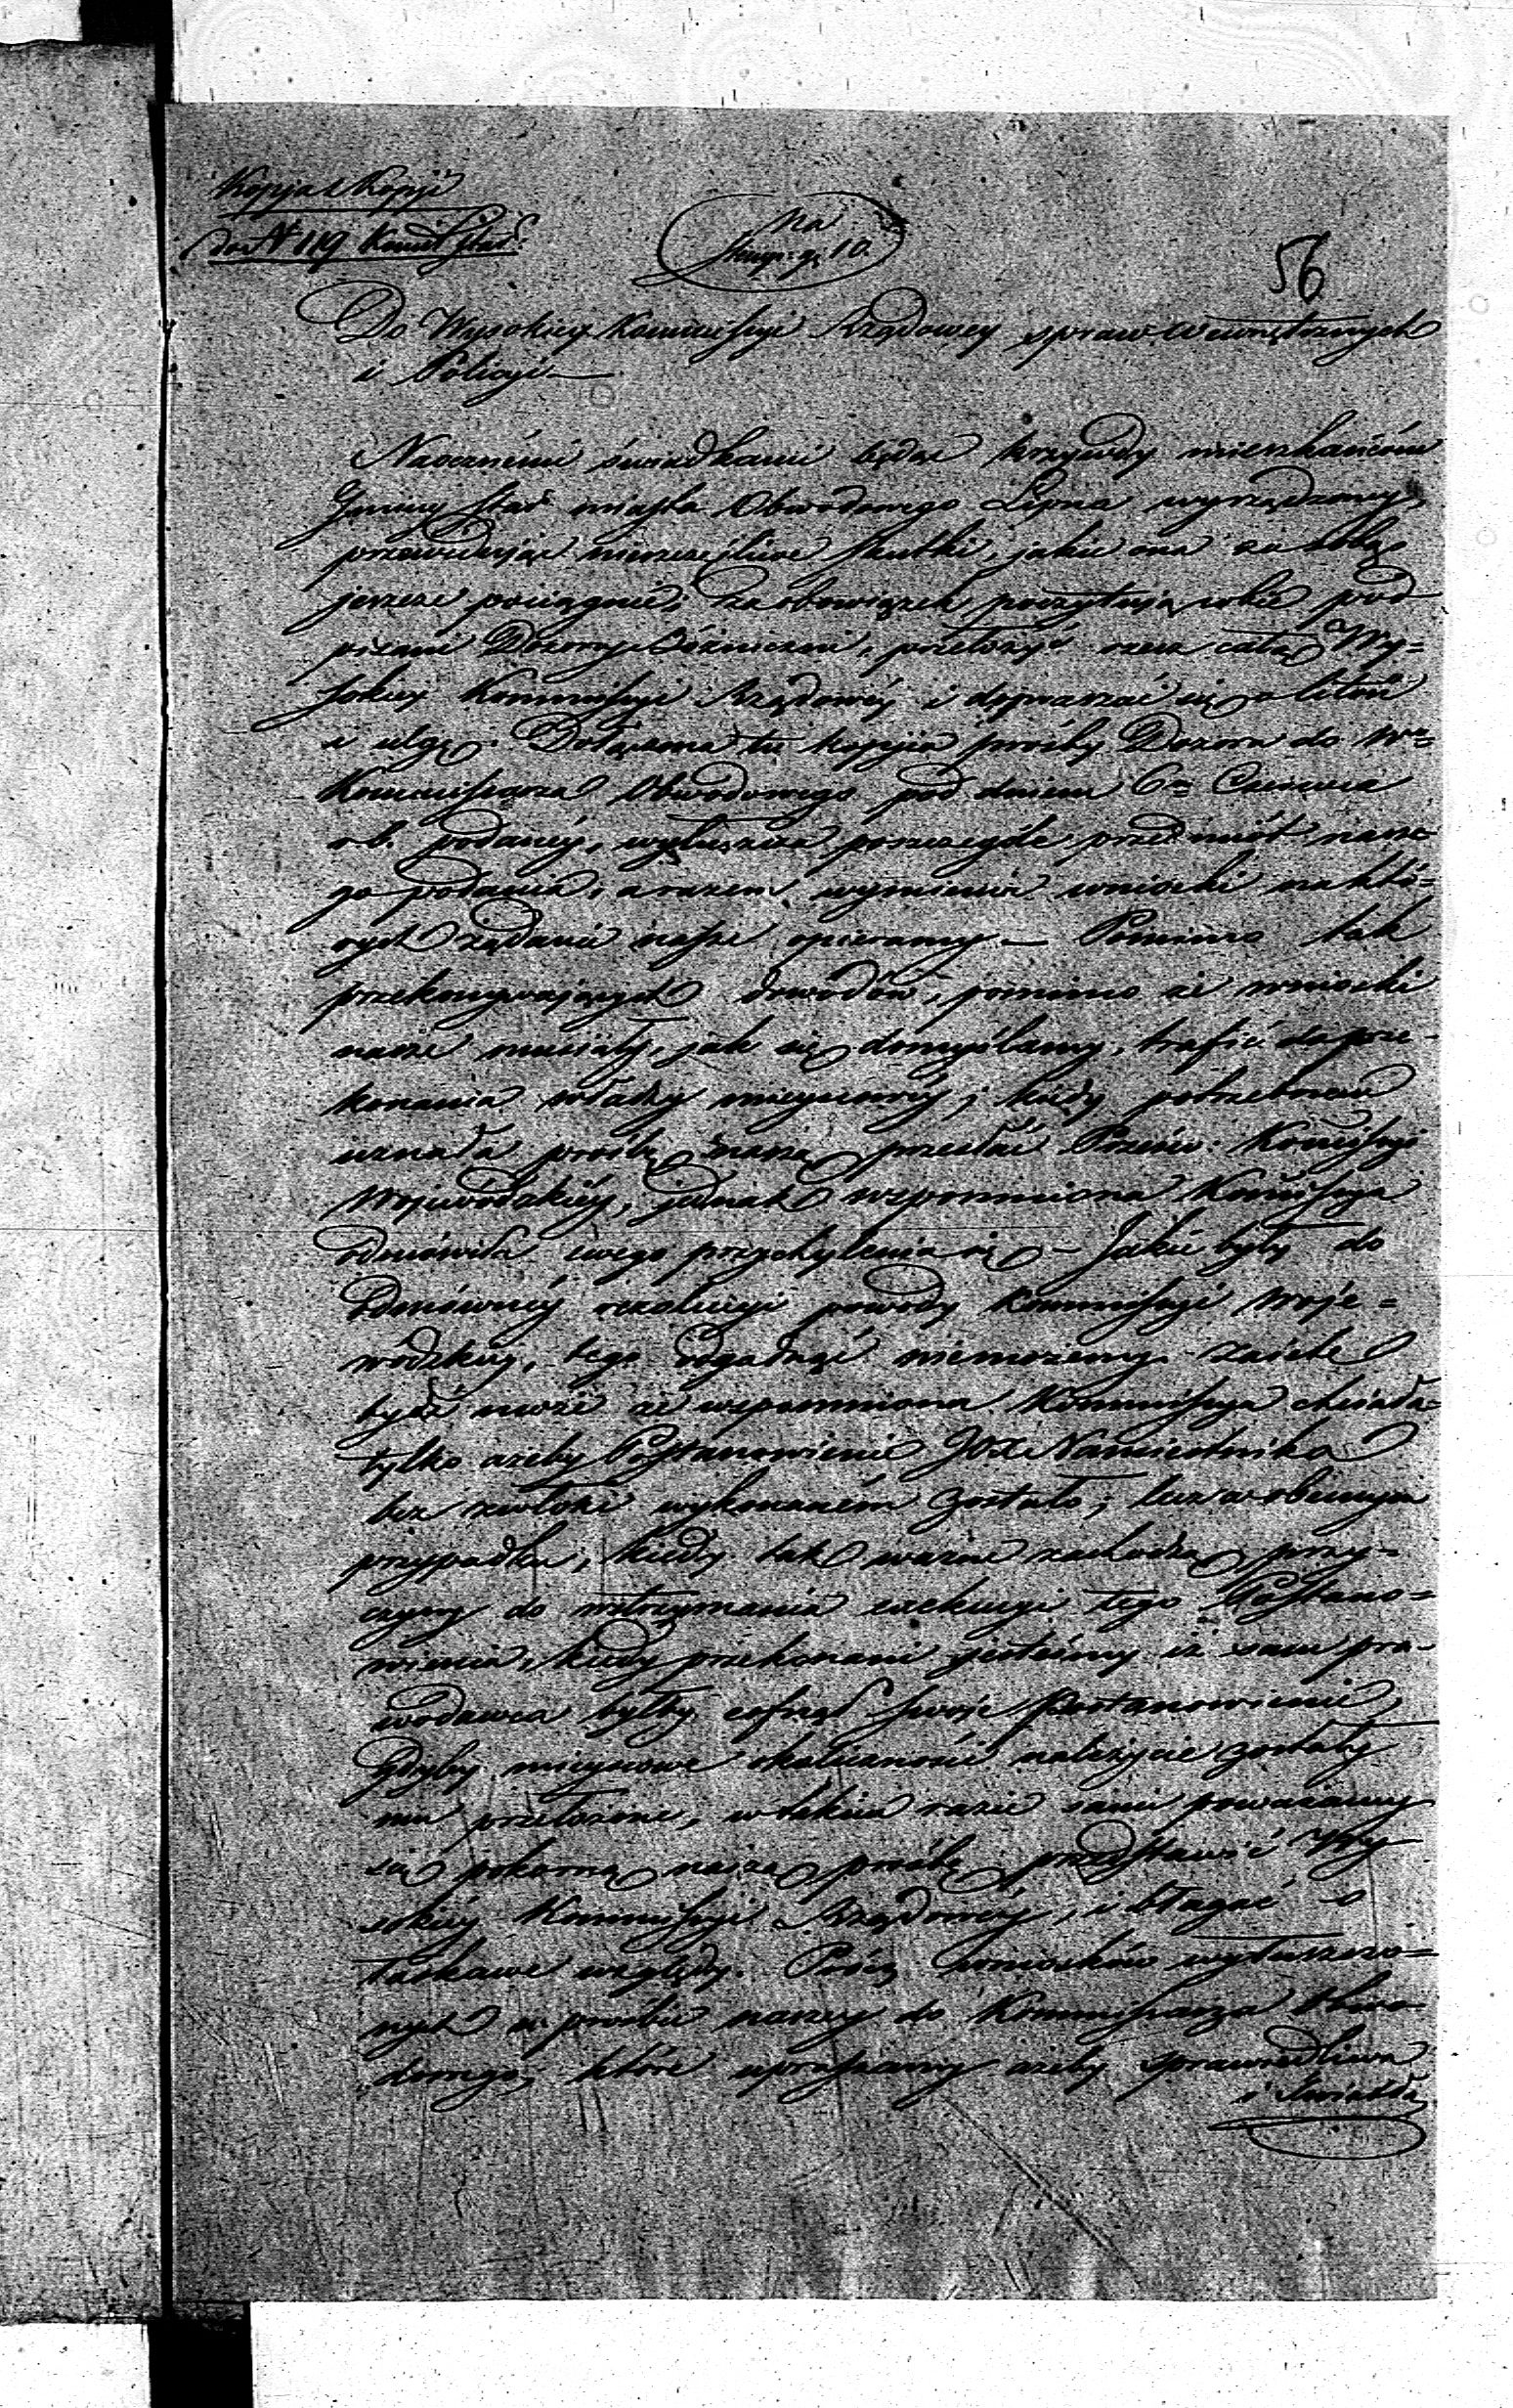 Kopja z Kopji
do N 119
Na
Stemp: gr 10.
56
Do Wysokiey Kommissyi Rządowey spraw Wewnętrznych
i Policyi
Naocznémi świadkami będąc krzywdy mieszkańcóm
Gminy Star miasta Obwodowego Lipna wyrządzoney,
przewidując nieszczęśliwe skutki, jakie ona za sobą
jeszcze pociągnie, za obowiązek poczytują sobie pod
pisani Dozorcy Bóżniczni, przełożyć rzecz całą Wy=
sokiey Kommissyi Rządowéy i dopraszać się o litość
i ulgę. Dołączona tu kopyia prośby Dozoru do Wo=
Kommissarza Obwodowego pod dniem 6m Czerwca
r.b. podanéy, wyłuszcza poszczególe przedmiót nasze
go podania, a razem wymienia wnioski na któ=
rych żądanie nasze opieramy — Pomimo tak
przekonywających dowodów, pomimo że wnioski
nasze musiały, jak się domyślamy, trafić do prze-
konania władzy mieyscowéy, kiedy potrzebném
uznała prośbę naszą przesłać Prześw: Kommissyi
Wojewódzkiéy, jednak wspomniona Kommissya
odmówiła swego przychylenia się — Jakie były do
Odmównéy rezolucyi powody Kommissyi Woje=
wódzkiey, tego odgadnąć niemożemy
bydź może że wspomniona Kommissya chciała
tylko ażeby Postanowienie JOX Namiestnika
bez zwłoki wykonaném zostało; lecz w obecnym
przypadku, kiedy tak ważne zachodzą przy=
czyny do wstrzymania exekucyi tego Postano=
wienia, kiedy przekonani jesteśmy iż sam pra-
wodawca byłby cofnął swoje Postanowienie,
Gdyby mieyscowe okoliczności należycie zostały
mu przełożone, w takim razie sami poważamy
się pokorną naszą prośbę przedstawić Wy
sokiéy Kommissyi Rządowéy, i błagać o
łaskawe względy. Prócz wniosków wyłuszczo=
nych w prośbie naszey do Kommissarza Obwo-
dowego, które upraszamy ażeby sprawiedliwa
i Światła